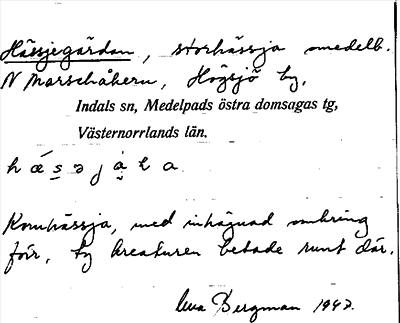 Hässjegärdan, storhässja omedelb.
N Marschåkern, Högsjö by,
Indals sn, Medelpads östra domsagas tg,
Västernorrlands län.
Kornhässja, med inhägnad omkring
för, ty kreaturen betade runt där.
Bergman 1947.